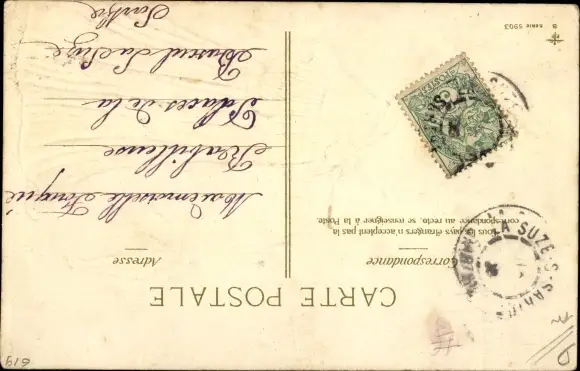 CARTE POSTALE
Correspondance
Tous les pays étrangers n'acceptent pas la
correspondance au recto, se renseigner à la Poste.
Adresse
Mademoiselle
Habilleuse
Palaces de la
Bureau La Suze
Sarthe
LA SUZE-S-SARTHE
SÉRIE 5903
619